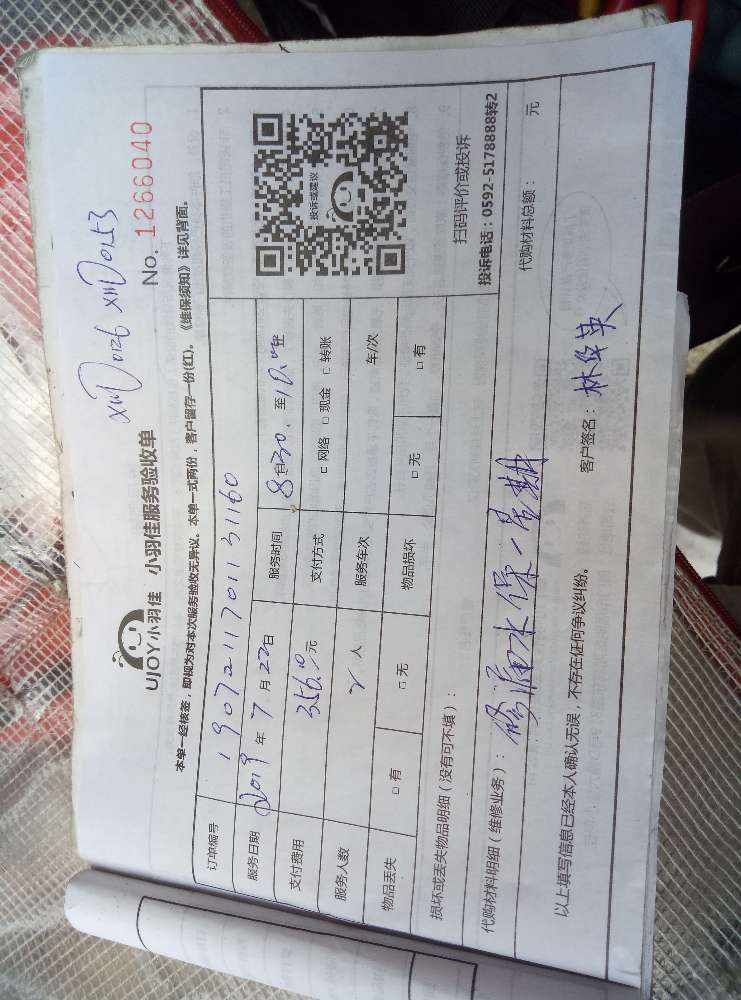 XMD0126 XMD0153
UJOY小羽佳 小羽佳服务验收单
No. 1266040
本单一经核签，即视为对本次服务验收无异议。本单一式两份，客户留存一份(红)。《维保须知》详见背面。
订单编号 1907211701131160
服务日期 2019 年 7 月 22 日 服务时间 8 时 30 至 10:00
支付费用 356.0 元 支付方式 □ 网络 □ 现金 □ 转账
服务人数 2 人 服务车次 车/次
物品丢失 □ 有 □ 无 物品损坏 □ 无 □ 有
投诉或建议
扫码评价或投诉
投诉电话：0592-5178888转2
损坏或丢失物品明细（没有可不填）：
代购材料明细（维修业务）： 修漏水保一星期
代购材料总额： 元
以上填写信息已经本人确认无误，不存在任何争议纠纷。
客户签名： 林 英